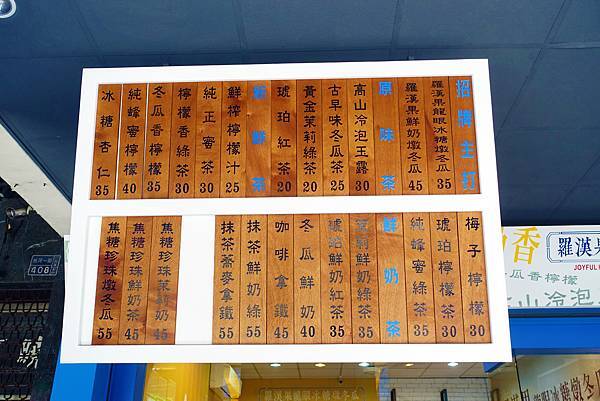 招牌主打
羅漢果龍眼冰糖燉冬瓜 35
羅漢果鮮奶燉冬瓜 45
原味茶
高山冷泡玉露 30
古早味冬瓜茶 25
黃金茉莉綠茶 20
琥珀紅茶 20
新鮮茶
鮮榨檸檬汁 25
純正蜜茶 30
檸檬香綠茶 35
冬瓜香檸檬 35
純蜂蜜檸檬 40
冰糖杏仁 35
梅子檸檬 30
琥珀檸檬茶 30
純蜂蜜綠茶 35
鮮奶茶
茉莉鮮奶綠茶 35
琥珀鮮奶紅茶 35
冬瓜鮮奶 40
咖啡拿鐵 45
抹茶鮮奶茶 55
抹茶蕎麥拿鐵 55
焦糖珍珠茉莉奶 45
焦糖珍珠鮮奶茶 45
焦糖珍珠燉冬瓜 55
408
香
瓜香檸檬
山冷泡
羅漢果
JOYFUL
羅漢果龍眼冰糖燉冬瓜
龍眼冰糖燉冬瓜